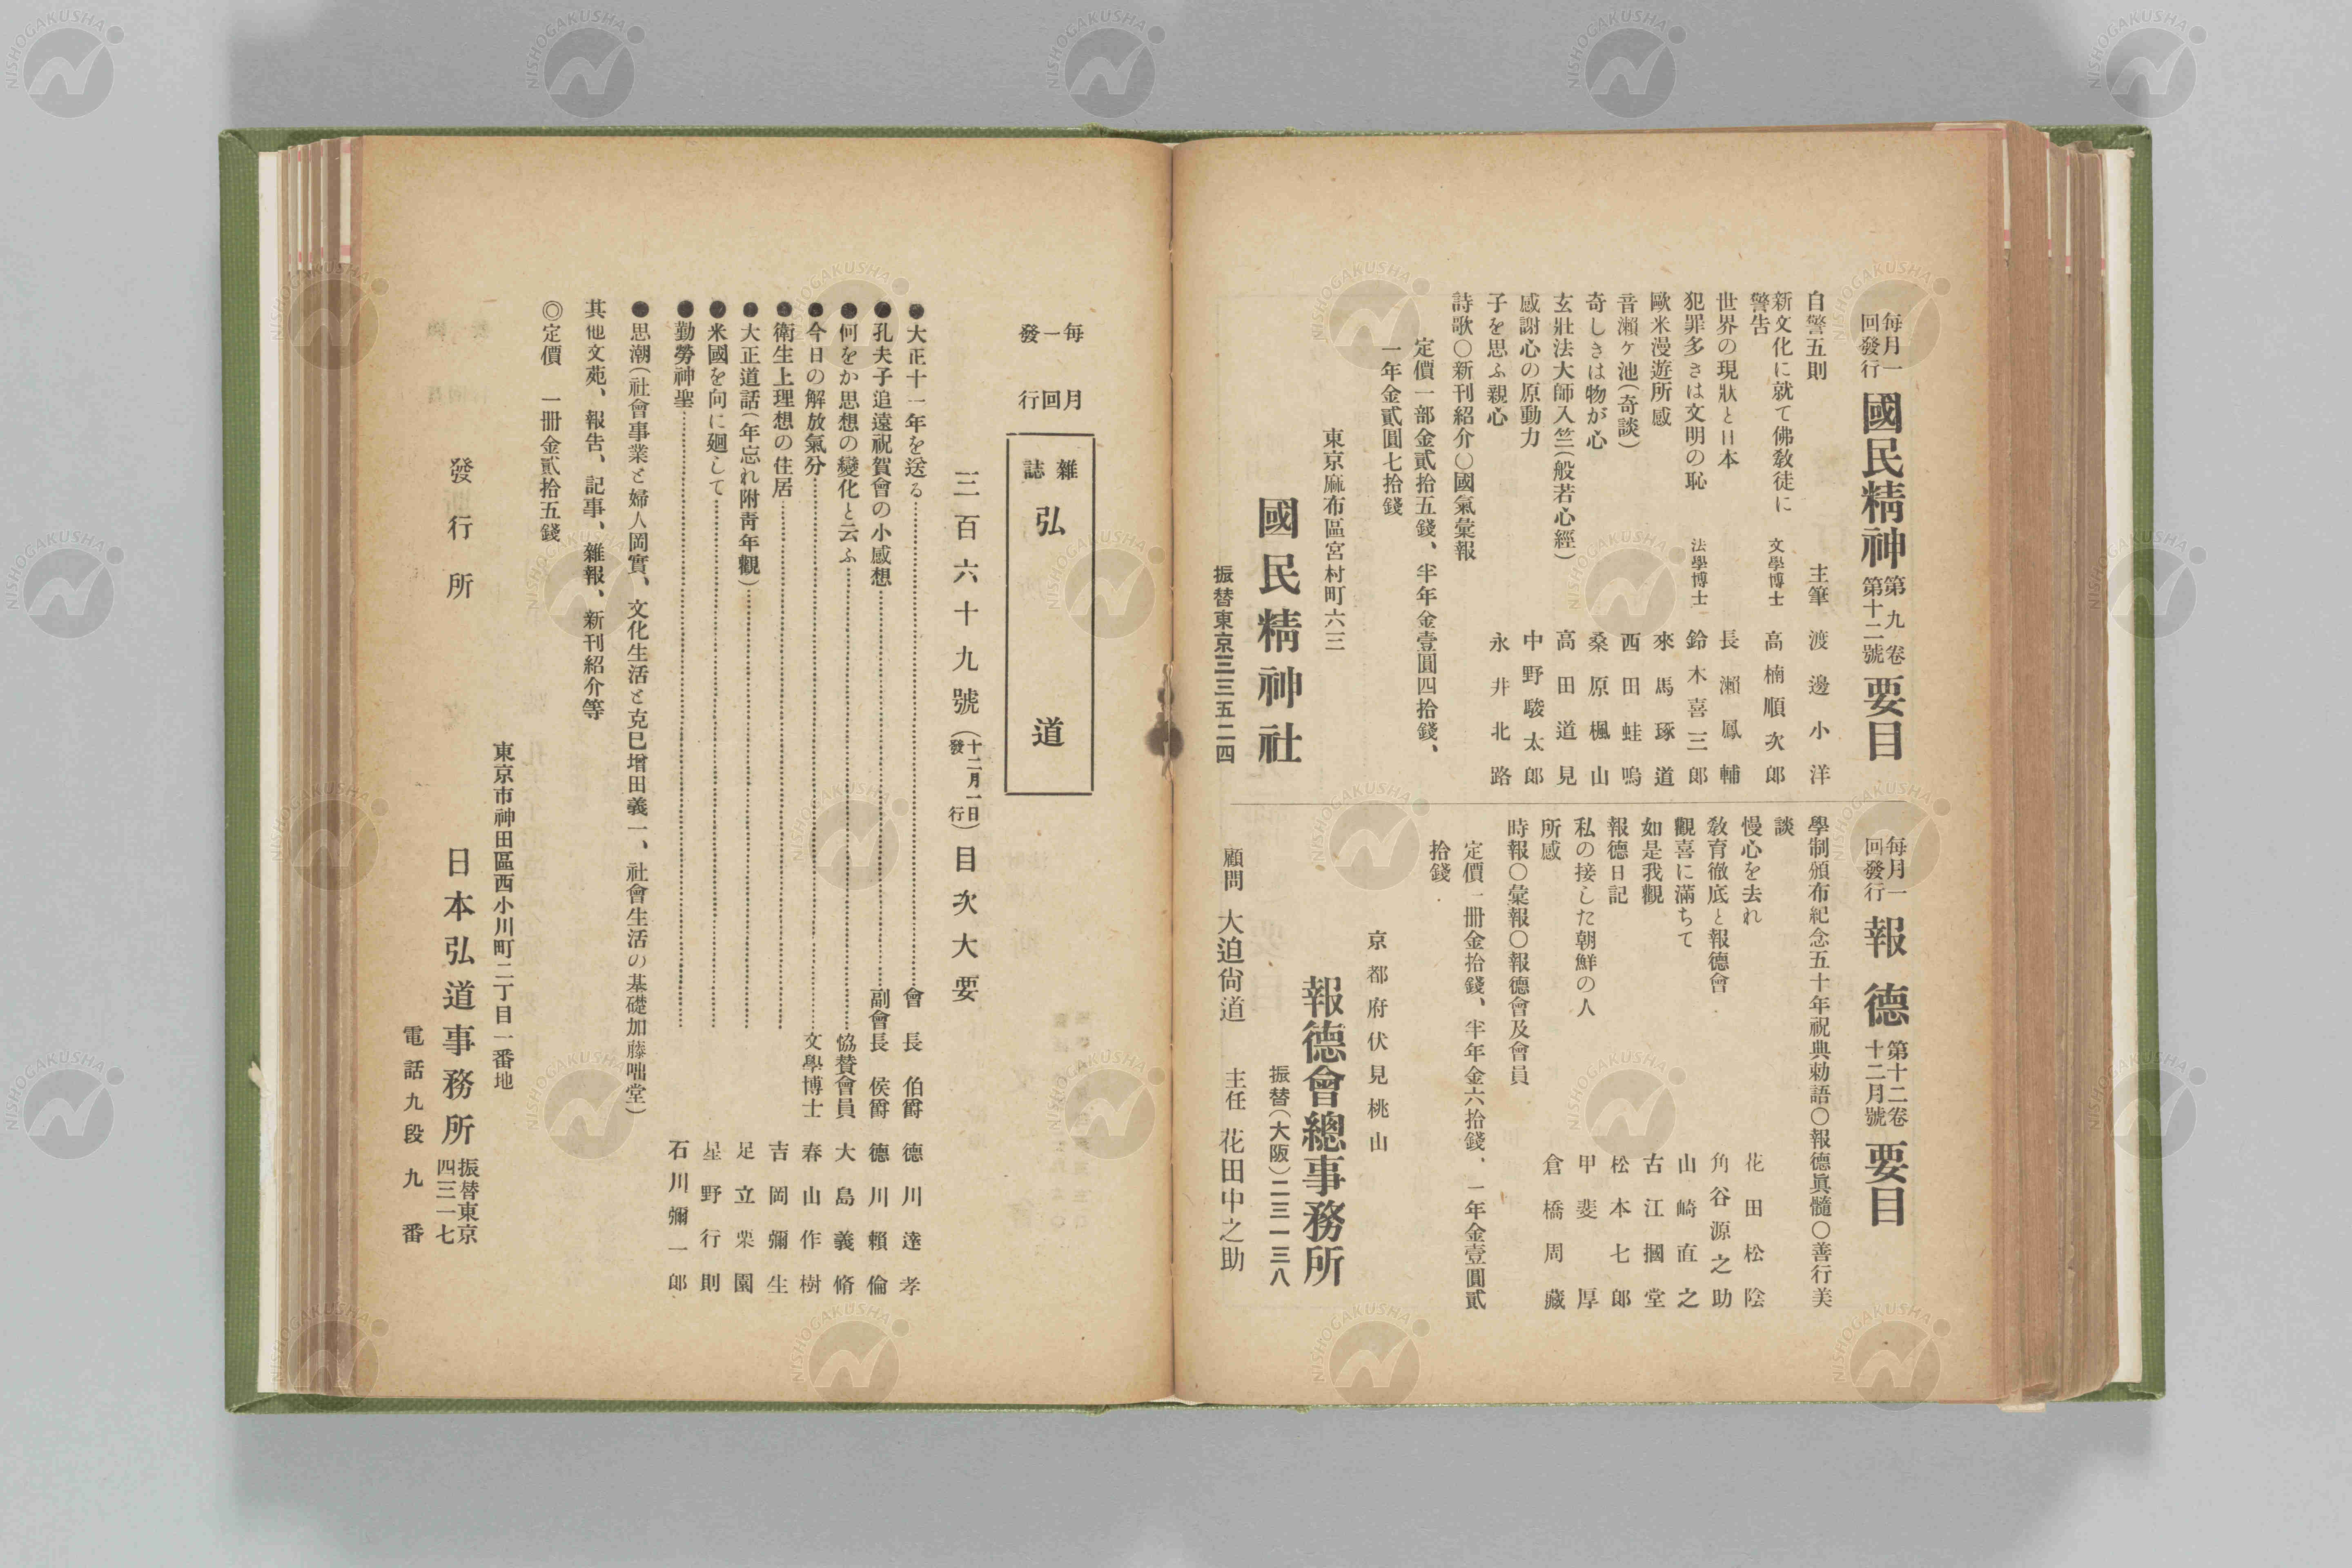 毎月一回發行 國民精神 第九卷第十二號 要目
自警五則 主筆 渡邊小洋
新文化に就て佛敎徒に警告 文學博士 高楠順次郎
世界の現狀と日本 長瀨鳳輔
犯罪多きは文明の恥 法學博士 鈴木喜三郎
歐米漫遊所感 來馬琢道
音瀨ヶ池(奇談) 西田蛙鳴
奇しきは物が心 桑原楓山
玄壯法大師入竺(般若心經) 高田道見
感謝心の原動力 中野駿太郎
子を思ふ親心 永井北路
詩歌〇新刊紹介〇國氣彙報
定價一部金貳拾五錢、半年金壹圓四拾錢、
一年金貳圓七拾錢
東京麻布區宮村町六三
國民精神社
振替東京三三五二四
毎月一回發行 報德 第十二卷十二月號 要目
學制頒布紀念五十年祝典勅語〇報德眞髓〇善行美
談
慢心を去れ 花田松陰
敎育徹底と報德會 角谷源之助
觀喜に滿ちて 山崎直之
如是我觀 古江摑堂
報德日記 松本七郎
私の接した朝鮮の人 甲斐厚
所感 倉橋周藏
時報〇彙報〇報德會及會員
定價一冊金拾錢、半年金六拾錢、一年金壹圓貳
拾錢
京都府伏見桃山
報德會總事務所
振替(大阪)二三一三八
顧問 大迫尙道 主任 花田中之助
毎月一回發行
雜誌 弘道
三百六十九號(十二月一日發行)目次大要
●大正十一年を送る 會長 伯爵 德川達孝
●孔夫子追遠祝賀會の小感想 副會長 侯爵 德川賴倫
●何をか思想の變化と云ふ 協賛會員 大島義脩
●今日の解放氣分 文學博士 春山作樹
●衛生上理想の住居 吉岡彌生
●大正道話(年忘れ附靑年觀) 足立栗園
●米國を向に廻して 星野行則
●勤勞神聖 石川彌一郎
●思潮(社會事業と婦人岡實、文化生活と克巳增田義一、社會生活の基礎加藤咄堂)
其他文苑、報吿、記事、雜報、新刊紹介等
◎定價 一冊金貳拾五錢
東京市神田區西小川町二丁目一番地
發行所 日本弘道事務所 振替東京四三一七
電話九段九番
NISHOGAKUSHA